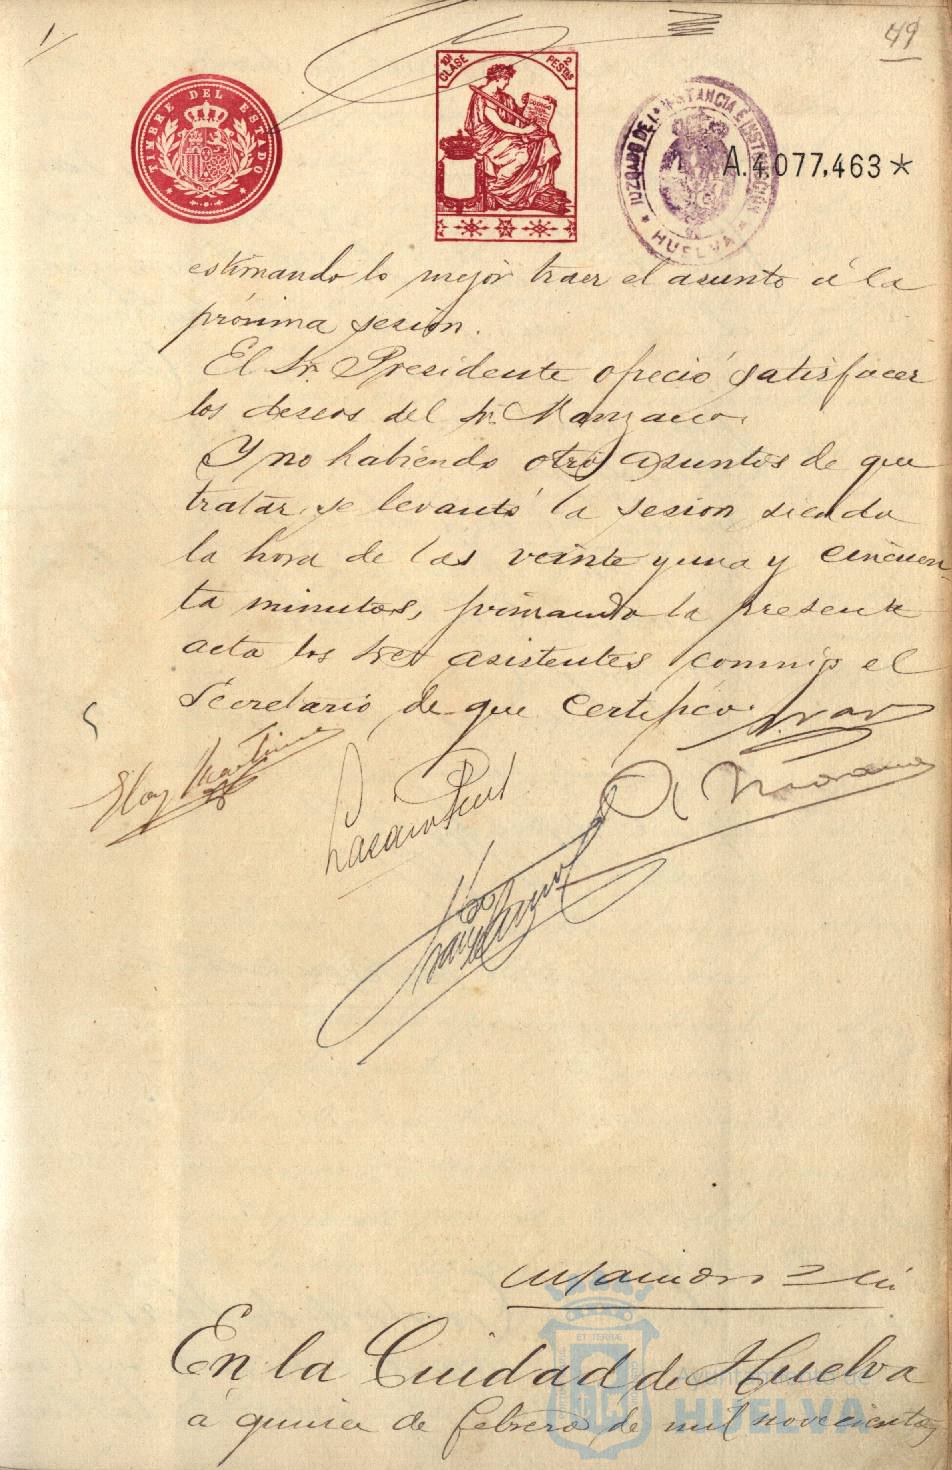 49
TIMBRE DEL ESTADO
10ª CLASE 2 PESTAS
JUZGADO DE 1ª INSTANCIA E INSTRUCCIÓN
HUELVA
A.4.077,463*
estimando lo mejor traer el asunto á la
próxima sesión.
El Sr. Presidente ofreció satisfacer
los deseos del Sr. Manzano.
Y no habiendo otros asuntos de que
tratar, se levantó la sesion siendo
la hora de las veinte y una y cincuen
ta minutos, firmando la presente
acta los tres asistentes conmigo el
Secretario de que certifico.
Eloy Martinez
En la Ciudad de Huelva
á quince de febrero de mil novecientos
HUELVA